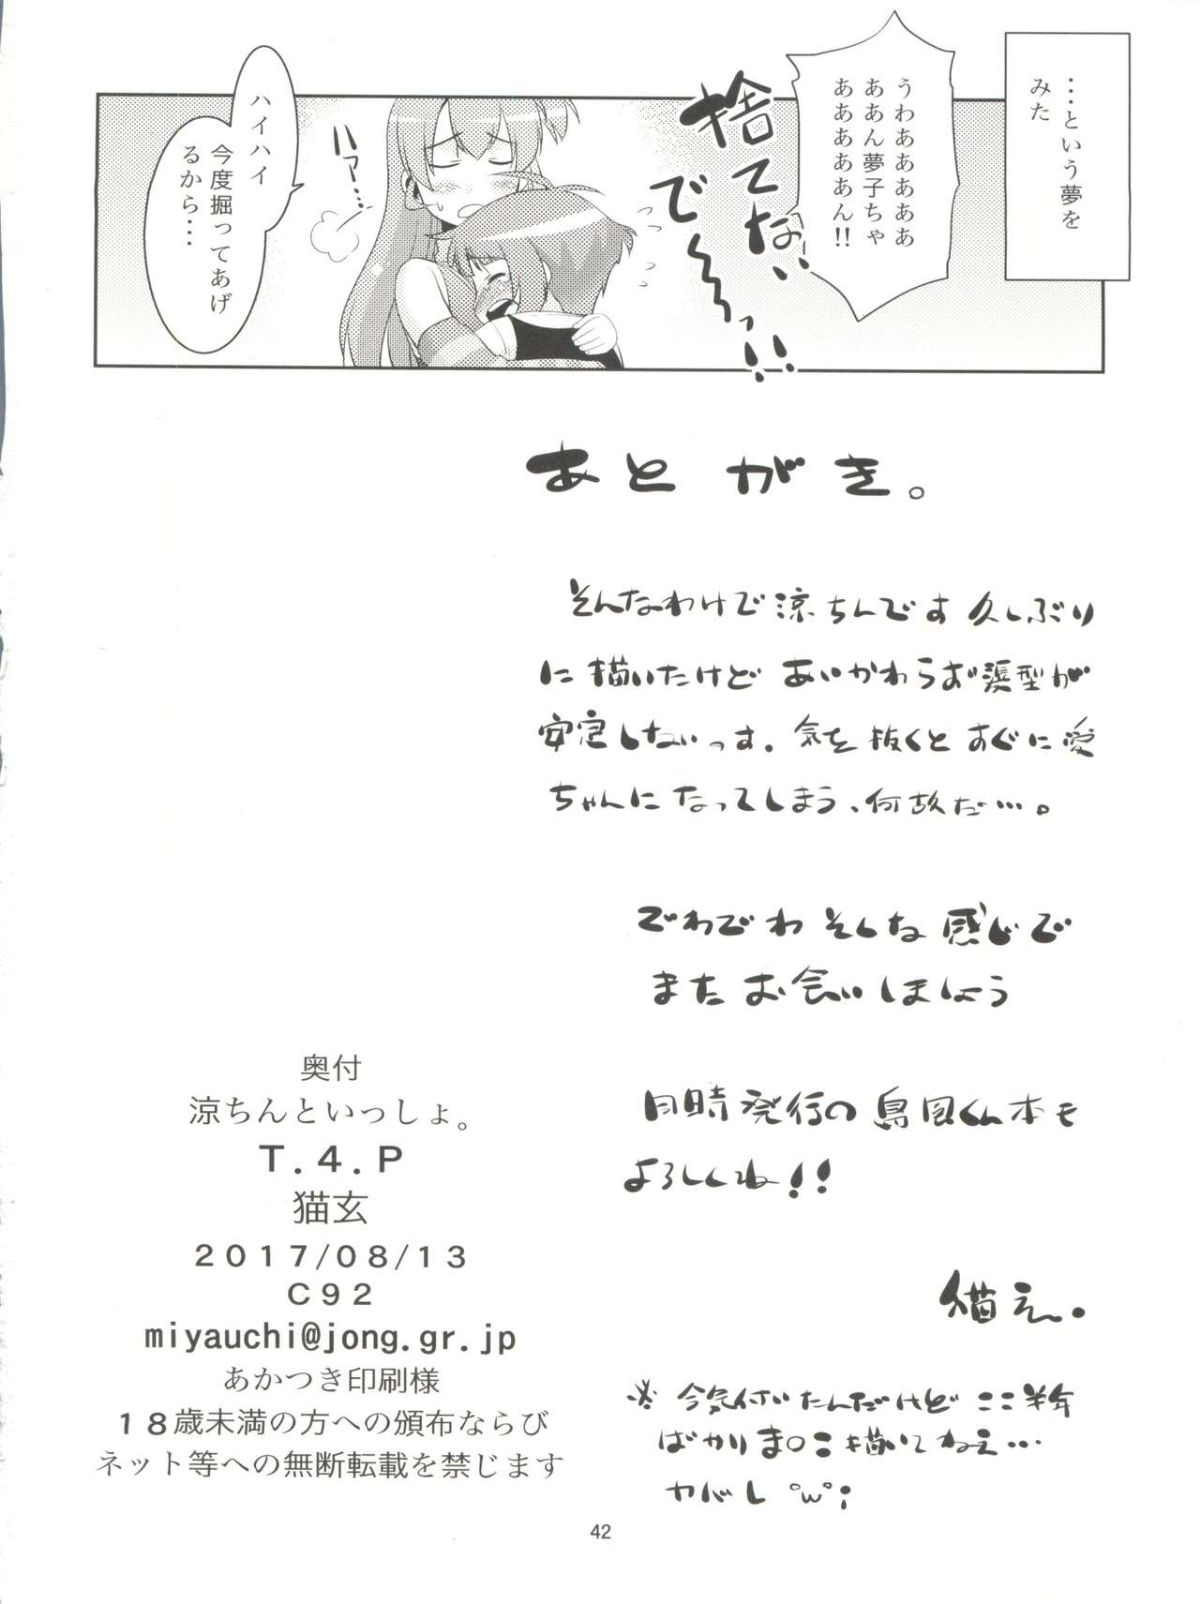 …という夢を
みた
うわああああああ
ああん夢子ちゃ
ああああああん!!
捨てない
で〜〜っ!!
ハァ…
ハイハイ
今度掘ってあげ
るから・・・
あとがき。
そんなわけで涼ちんです久しぶり
に描いたけど あいかわらず髪型が
安定しないっす。気を抜くとすぐに愛
ちゃんになってしまう、何故だ…。
でわでわ そんな感じで
またお会いしましょう
同時発行の島風くん本も
よろしくね!!
猫玄。
※今気付いたんだけど ここ半年
ばかりま○こを描いてねえ…
ヤバし °w°;
奥付
涼ちんといっしょ。
T.4.P
猫玄
2017/08/13
C92
miyauchi@jong.gr.jp
あかつき印刷様
18歳未満の方への頒布ならび
ネット等への無断転載を禁じます
42